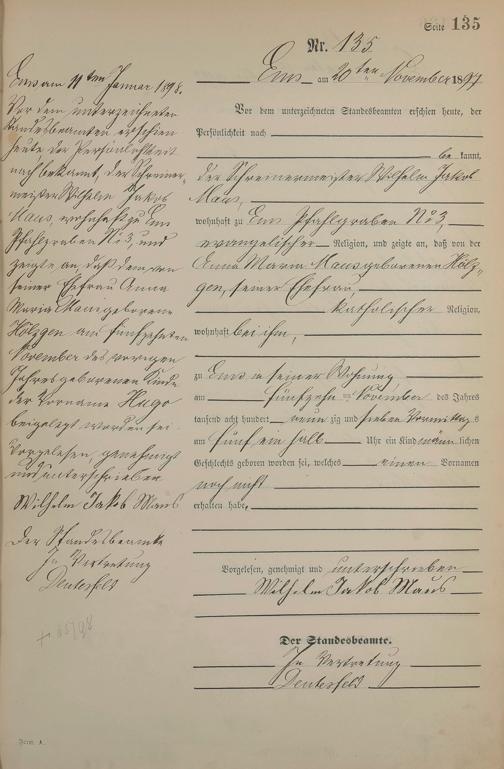 Seite 135
Nr. 135
Ems am 20ten November 1897
Vor dem unterzeichneten Standesbeamten erschien heute, der
Persönlichkeit nach
be kannt,
der Schreinermeister Wilhelm Jakob
Maus,
wohnhaft zu Ems Pfahlgraben No 3,
evangelischer Religion, und zeigte an, daß von der
Anna Maria Maus geborenen Hölz-
gen, seiner Ehefrau,
katholischer Religion,
wohnhaft bei ihm,
zu Ems in seiner Wohnung
am fünfzehn ten November des Jahres
tausend acht hundert neun zig und sieben Vormittags
um fünf ein halb Uhr ein Kind männ lichen
Geschlechts geboren worden sei, welches einen Vornamen
noch nicht
erhalten habe,
Vorgelesen, genehmigt und unterschrieben
Wilhelm Jakob Maus
Der Standesbeamte.
In Vertretung
Ems am 11ten Januar 1898.
Vor dem unterzeichneten
Standesbeamten erschien
heute der Persönlichkeit
nach bekannt, der Schreiner-
meister Wilhelm Jakob
Maus, wohnhaft zu Ems
Pfahlgraben No 3, und
zeigte an, daß dem von
seiner Ehefrau Anna
Maria Maus geborene
Hölzgen am fünfzehnten
November des vorigen
Jahres geborenen Kinde
der Vorname Hugo
beigelegt worden sei.
Vorgelesen, genehmigt
und unterschrieben
Wilhelm Jakob Maus
Der Standesbeamte
In Vertretung
Form A.